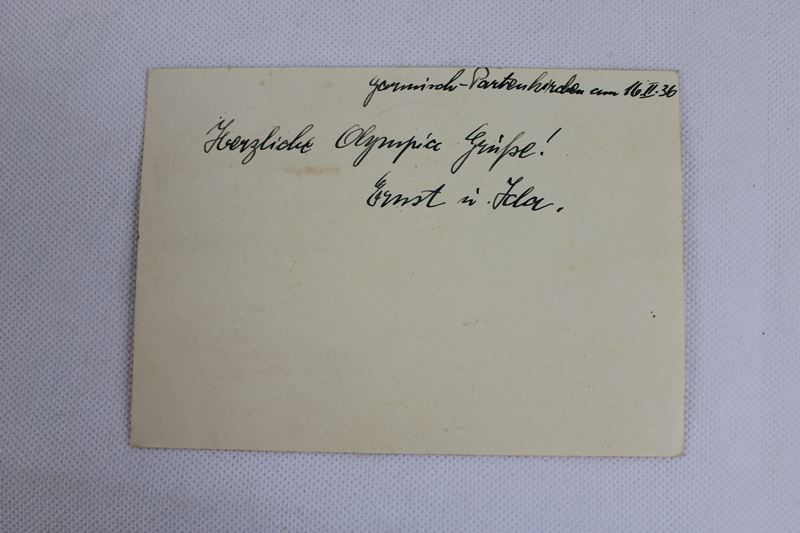 Garmisch-Partenkirchen am 16 II. 36
Herzliche Olympia Grüße!
Ernst u. Ida.